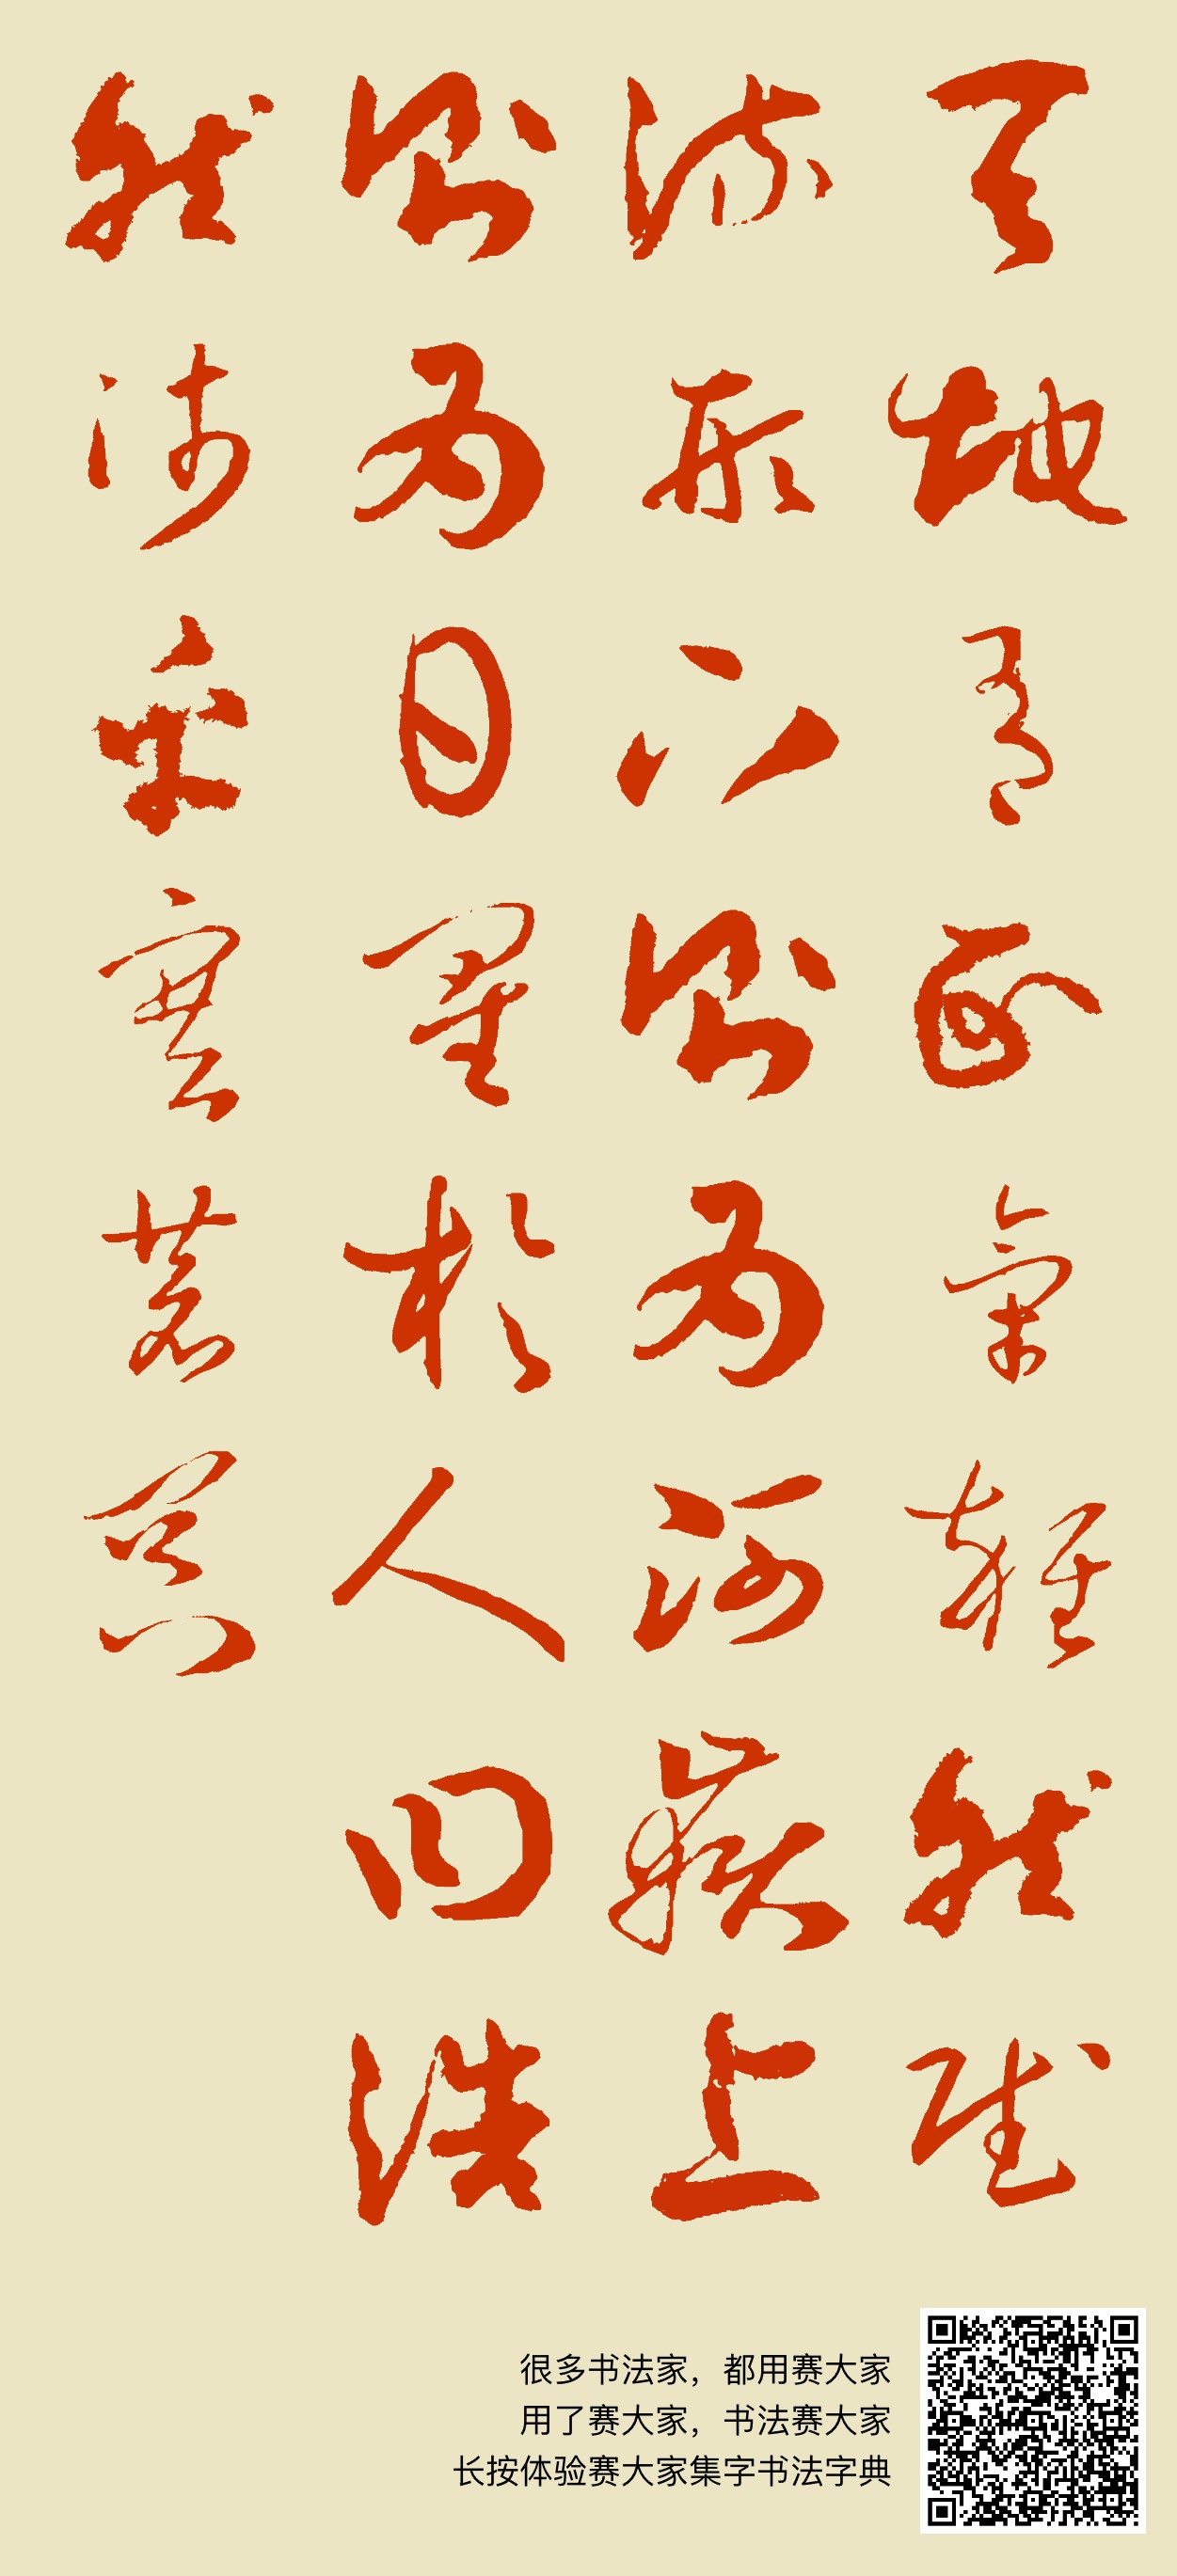 天地有正氣雜然賦
流形下則為河嶽上
則為日星於人曰浩
然沛乎塞蒼冥
很多书法家，都用赛大家
用了赛大家，书法赛大家
长按体验赛大家集字书法字典